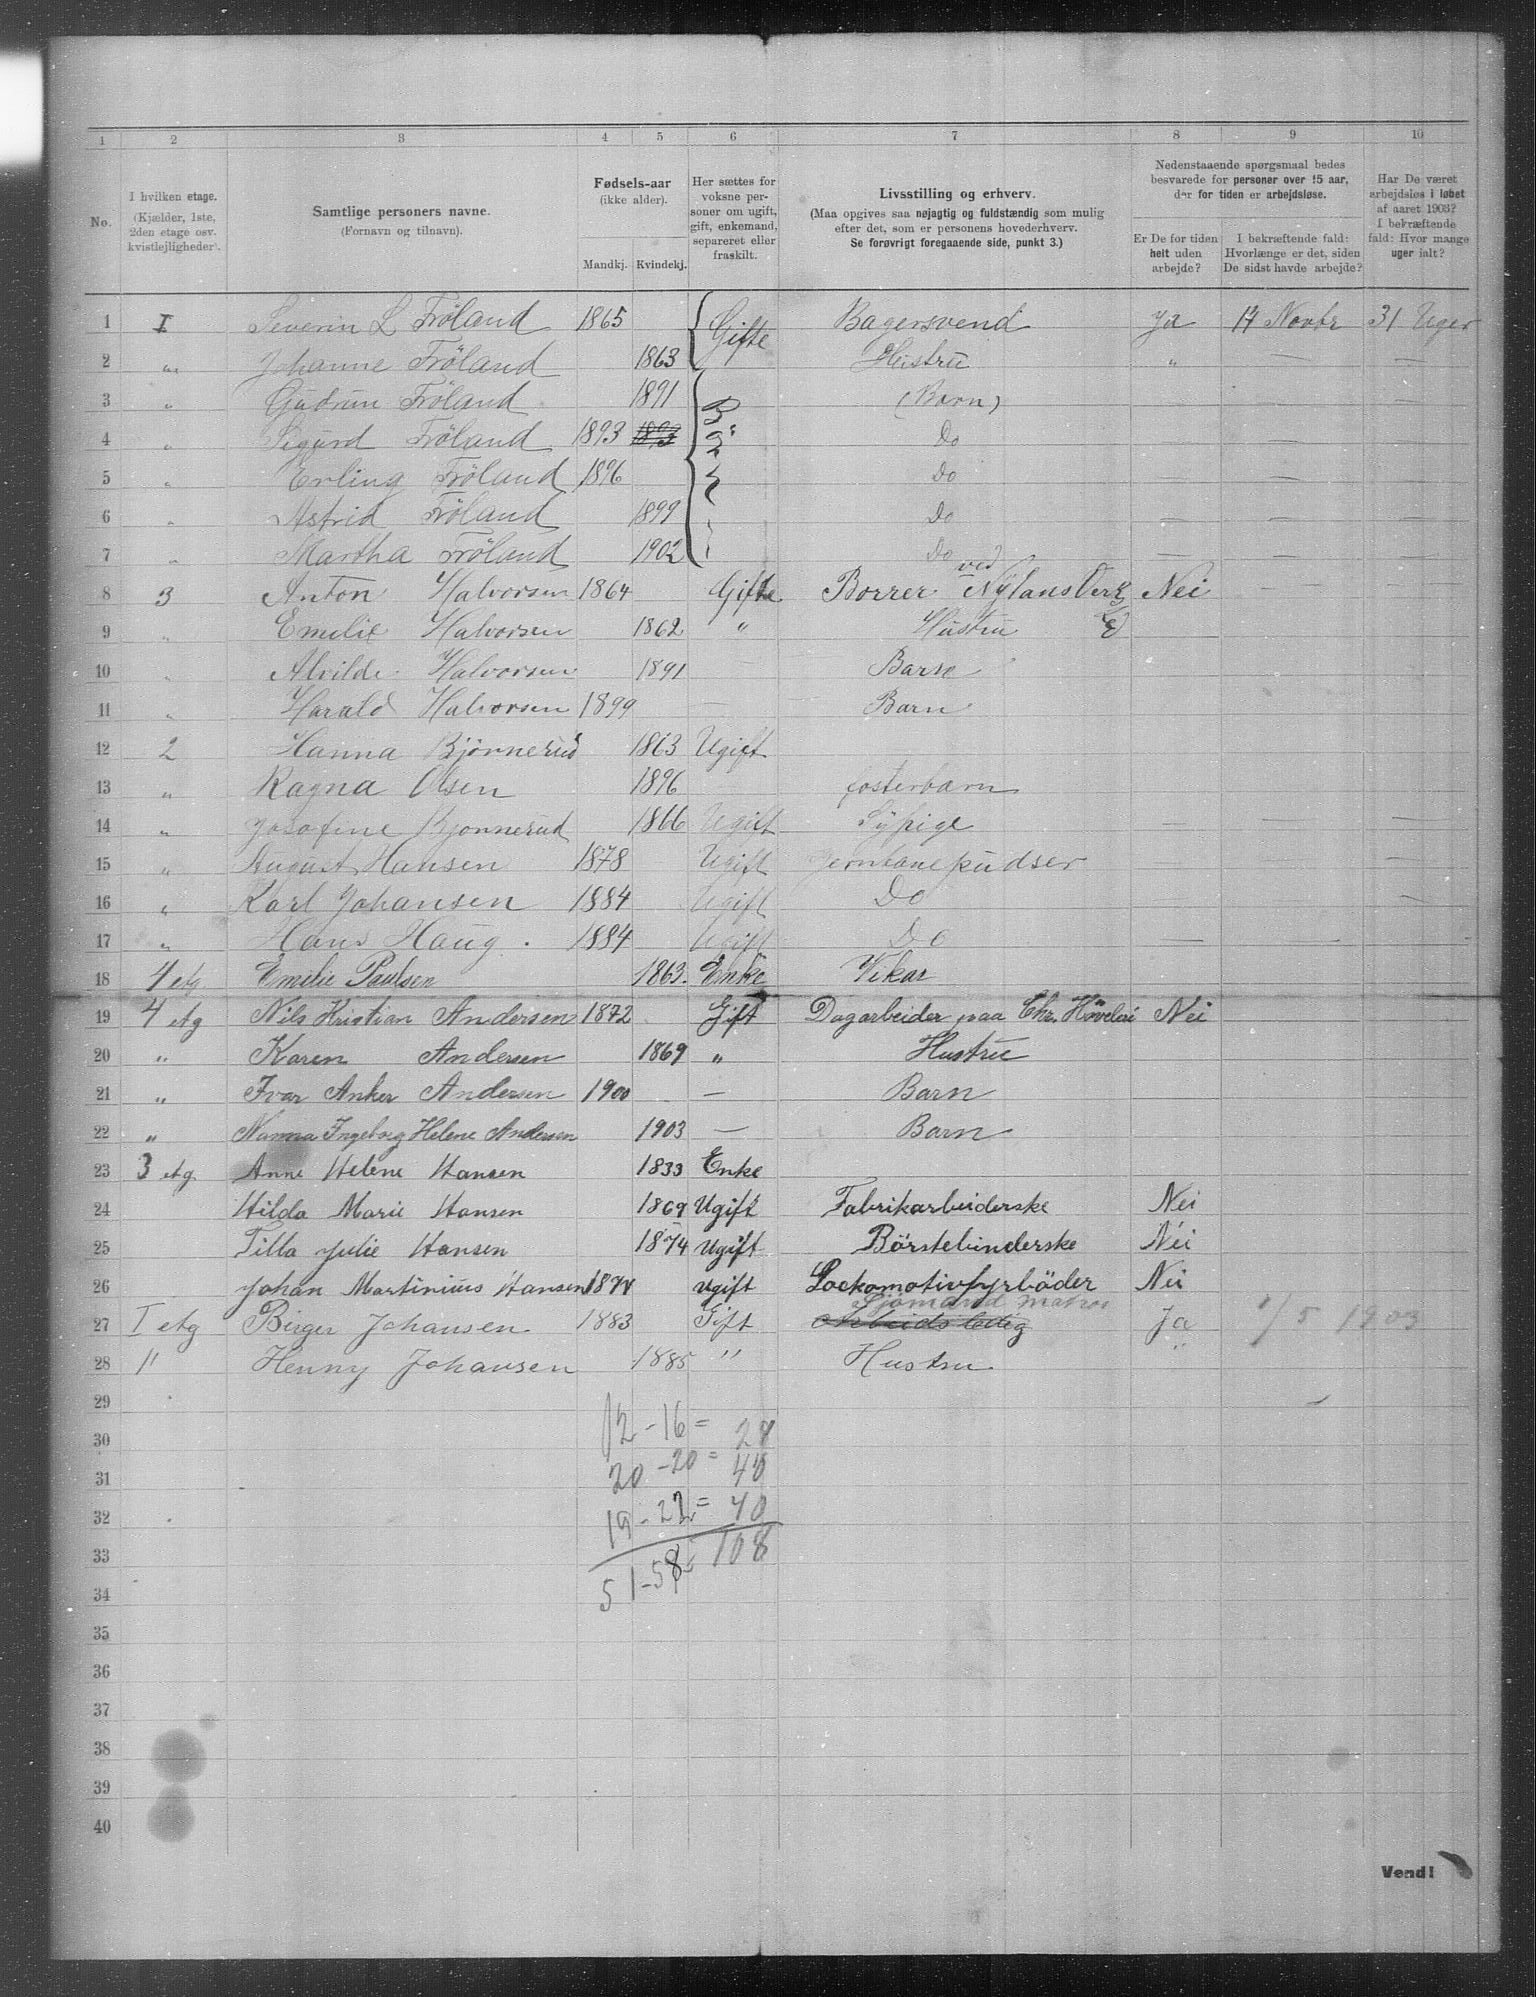 1 2 3 4 5 6 7 8 9 10
No.
I hvilken etage. (Kjælder, 1ste, 2den etage osv. kvistleiligheder).
Samtlige personers navne. (Fornavn og tilnavn).
Fødsels-aar (ikke alder).
Mandkj. Kvindekj.
Her sættes for voksne personer om ugift, gift, enkemand, separeret eller fraskilt.
Livsstilling og erhverv.
(Maa opgives saa nøjagtig og fuldstændig som mulig efter det, som er personens hovederhverv. Se forøvrigt foregaaende side, punkt 3.)
Nedenstaaende spørgsmaal bedes besvarede for personer over 15 aar, der for tiden er arbejdsløse.
Er De for tiden helt uden arbejde?
I bekræftende fald: Hvorlænge er det, siden De sidst havde arbejde?
Har De været arbejdsløs i løbet af aaret 1903? I bekræftende fald: Hvor mange uger ialt?
1 I Severin L Fröland 1865 Gifte Bagersvend ja 14 Novbr 31 Uger
2 " Johanne Fröland 1863 Hustru " — —
3 " Gudrun Fröland 1891 Börn (Barn) — — —
4 " Sigurd Fröland 1893 1893 Do — — —
5 " Erling Fröland 1896 Do — — —
6 " Astrid Fröland 1899 Do — — —
7 " Martha Fröland 1902 Do — — —
8 3 Anton Halvorsen 1864 Gifte Borrer ved Nylans Verksted Nei — —
9 " Emelie Halvorsen 1862 " Hustru
10 " Alvilde Halvorsen 1891 — Barn
11 " Harald Halvorsen 1899 — Barn
12 2 Hanna Bjönnerud 1863 Ugift
13 " Ragna Olsen 1896 fosterbarn
14 " Josefine Bjönnerud 1866 Ugift Sypige — — —
15 " August Hansen 1878 Ugift Jernbanepudser —
16 " Karl Johansen 1884 Ugift Do —
17 " Hans Haug. 1884 Ugift Do — — —
18 4 etg Emelie Paulsen 1863. Enke Vikar
19 4 etg Nils Kristian Andersen 1872 Gift Dagarbeider paa Chr. Höveleri Nei
20 " Karen Andersen 1869 " Hustru
21 " Ivar Anker Andersen 1900 — Barn
22 " Nanna Ingeborg Helene Andersen 1903 — Barn
23 3 etg Anne Helene Hansen 1833 Enke
24 Hilda Marie Hansen 1869 Ugift Fabrikarbeiderske Nei
25 Tilla Julie Hansen 1874 Ugift Börstebinderske Nei
26 Johan Martinius Hansen 1871 ugift Lockomotivfyrböder Nei
27 I etg Birger Johansen 1883 Gift Arbeidsledig Sjömand Matros Ja 1/5 1903
28 " Henny Johansen 1885 " Hustru "
29
30
31
32
33
34
35
36
37
38
39
40
12 - 16 = 28
20 - 20 = 40
19 - 22 = 40
51 - 58 = 108
Vend!